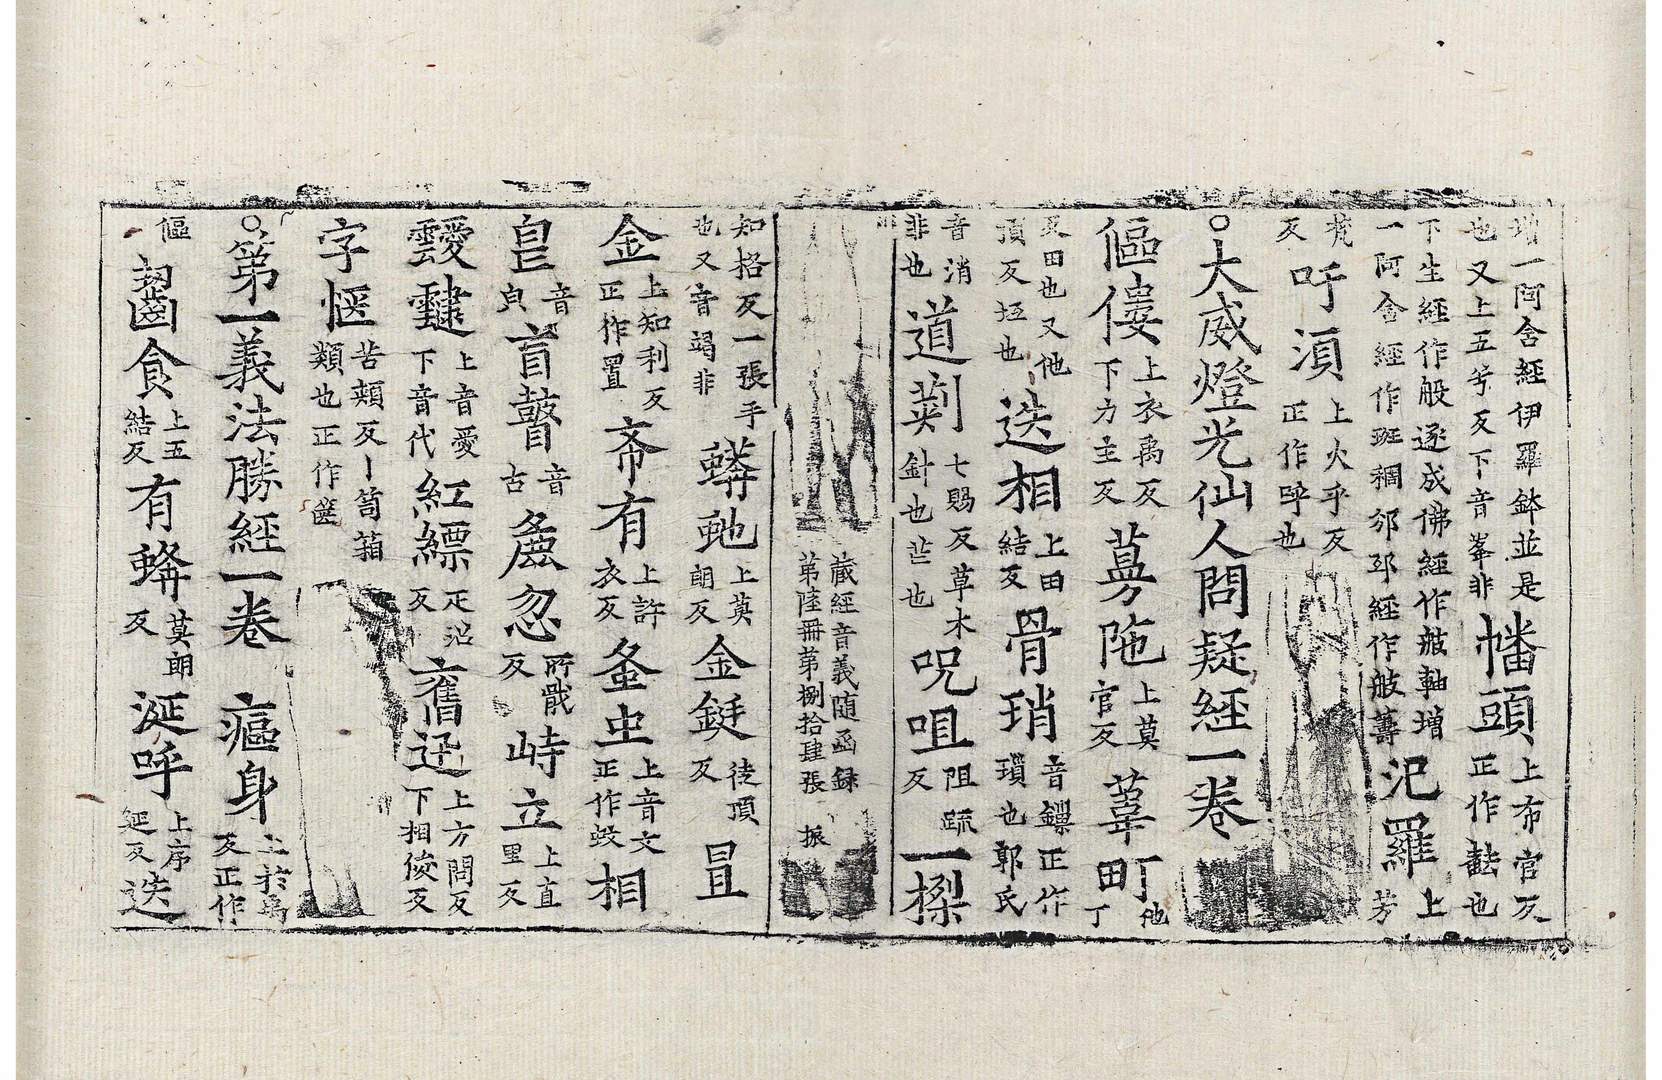 增一阿含經伊羅鉢並是
也又上五兮反下音峯非
幡頭
上布官反
正作㿱也
下生經作般遂成佛經作舷軸增
一阿含經作斑稠邠邳經作舷籌
汜羅
上芳
梵反
吁湏
上火乎反
正作呼也
○大威燈光仙人問疑經一卷
傴僂
上衣禹反
下力主反
蔓陁
上莫官反
葦町
他丁
反田也又他
頂反坵也
迭相
上田結反
骨瑣
音鏁正作
瑣也郭氏
音消
非也
道莿
七賜反草木
針也芒也
呪咀
阻疏反
一㮚
藏經音義隨函録
第陸冊第捌拾肆張 振
知格反一張手
也又音竭非
蟒虵
上莫朗反
金鋌
徒頂反
㫷
金
上知利反
正作置
斋有
上許衣反
蚉虫
上音文
正作蚊
相
皀
音皃
盲瞽
音古
麁忽
所戢反
峙立
上直里反
靉靆
上音愛
下音代
紅縹
疋沼反
奮迅
上方問反
下相俊反
字惬
苦頰反丨笥箱
類也正作篋
○第一義法勝經一卷
痀身
上於禹
反正作
傴
齧食
上五結反
有蟒
莫朗反
涎呼
上序延反
迭